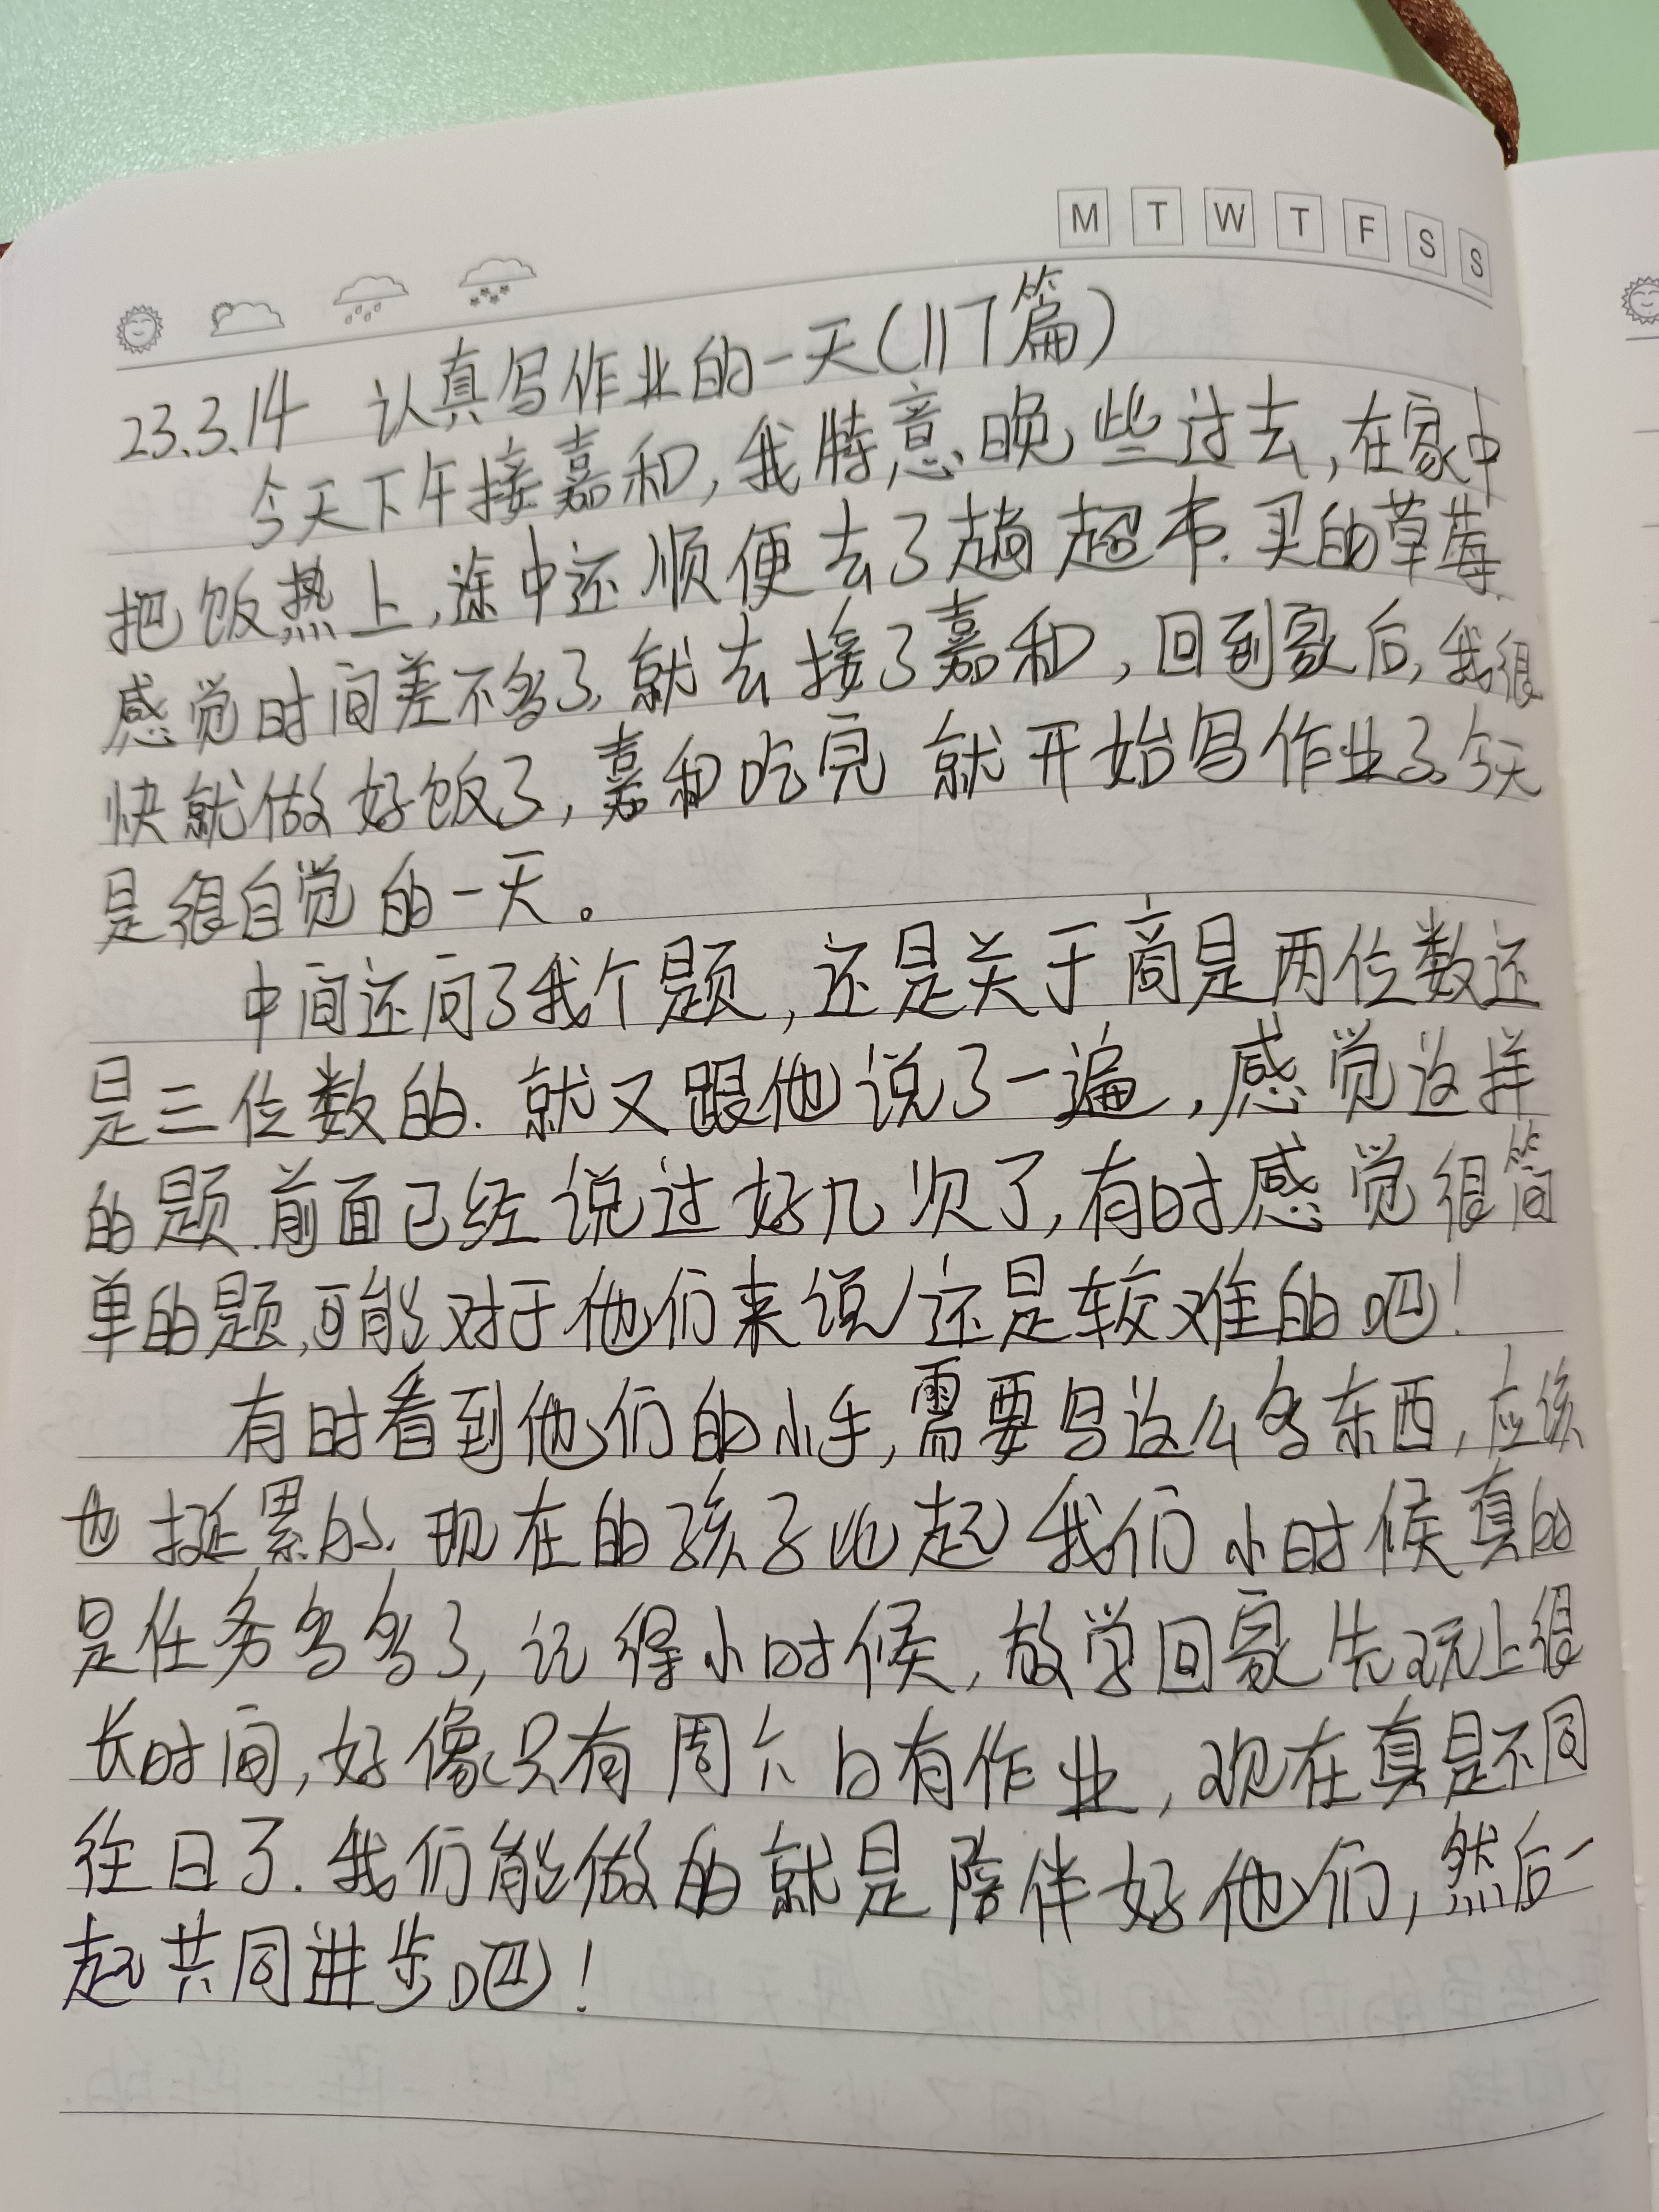 M T W T F S S
23.3.14 认真写作业的一天(117篇)
今天下午接嘉和,我特意晚些过去,在家中
把饭热上,途中还顺便去了趟超市.买的草莓.
感觉时间差不多了,就去接了嘉和,回到家后,我很
快就做好饭了,嘉和吃完就开始写作业了.今天
是很自觉的一天。
中间还问了我个题,还是关于商是两位数还
是三位数的.就又跟他说了一遍,感觉这样
的题.前面已经说过好几次了,有时感觉很简
单的题,可能对于他们来说还是较难的吧!
有时看到他们的小手,需要写这么多东西,应该
也挺累的.现在的孩子比起我们小时候真的
是任务多多了,记得小时候,放学回家先玩上很
长时间,好像只有周六日有作业,现在真是不同
往日了.我们能做的就是陪伴好他们,然后一
起共同进步吧!